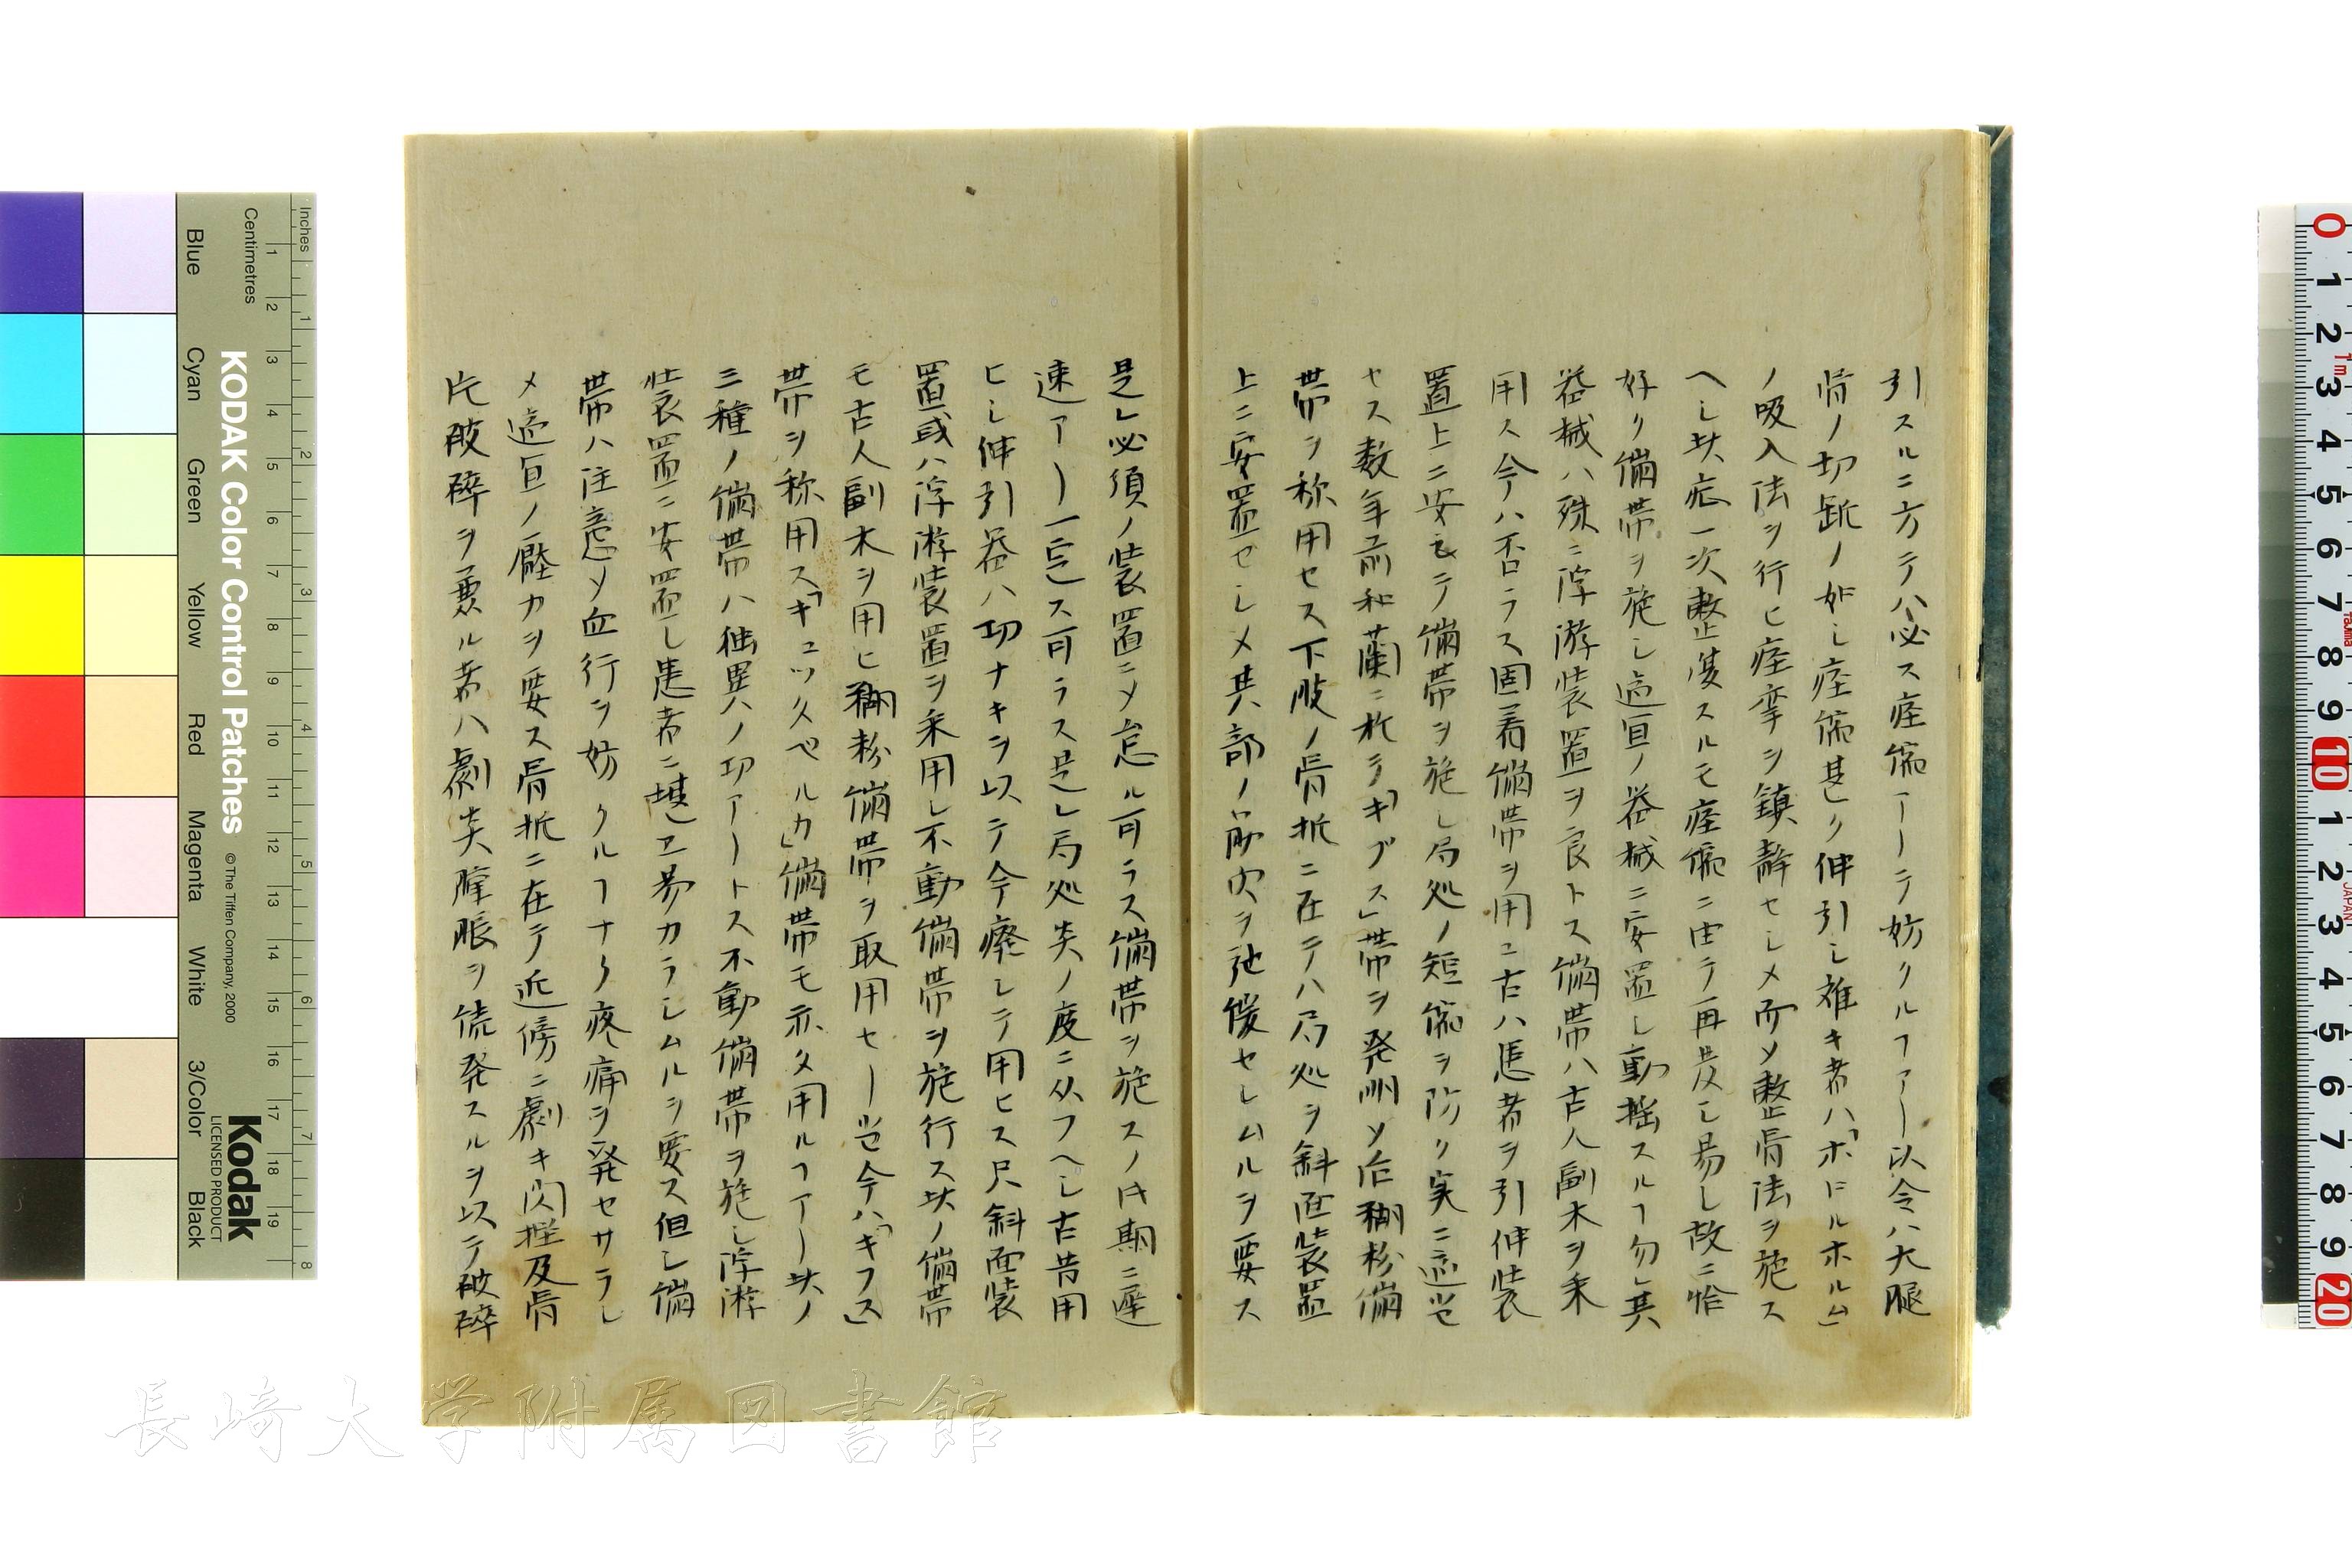 引スルニ方テハ必ス痙縮アーテ妨クルヿアー以令ハ大腿
骨ノ切断ノ如し痙縮甚しク伸引し難キ者ハ「ホロルホルム」
ノ吸入法ヲ行ヒ痙挛ヲ鎮静セしメ而メ整骨法ヲ施ス
へし此症一次整復スルモ痙縮ニ由テ再発し易し故ニ恰
好ク繃帯ヲ施し適宜ノ器械ニ安置し動揺スルヿ勿レ其
器械ハ殊ニ浮游装置ヲ良トス繃帯ハ古人副木ヲ采
用ス今ハ否ラス固着繃帯ヲ用ユ古ハ患者ヲ引伸装
置上ニ安シテ繃帯ヲ施し局処ノ短縮ヲ防ク実ニ適当
セス数年前和蘭ニ於テ「ギブス」帯ヲ発明ソ后糊粉繃
帯ヲ称用セス下肢ノ骨折ニ在テハ局処ヲ斜面装置
上ニ安置セしメ其部ノ筋肉ヲ弛緩セしムルヲ要ス
是レ必須ノ装置ニメ怠ル可ラス繃帯ヲ施スノ時期ニ遅
速アー一定ス可ラス是レ局処炎ノ度ニ从フへし古昔用
ヒし伸引器ハ功ナキヲ以テ今廃レテ用ヒス只斜面装
置或ハ浮游装置ヲ采用し不動繃帯ヲ施行ス此ノ繃帯
モ古人副木ヲ用ヒ糊粉繃帯ヲ取用セー当今ハ「キフス」
帯ヲ称用ス「ギュックペルカ」繃帯モ亦タ用ルヿアー此ノ
三種ノ繃帯ハ独異ノ功アートス不動繃帯ヲ施し浮游
装置ニ安置し患者ニ堪エ易カラしムルヲ要ス但し繃
帯ハ注意ソ血行ヲ妨クルヿナク疼痛ヲ発セサラし
メ適宜ノ壓力ヲ要ス骨折ニ在テ近傍ニ劇キ閃挫及骨
片破碎ヲ兼ル者ハ劇炎腫脹ヲ続発スルヲ以テ破碎
KODAK Color Control Patches
© The Tiffen Company, 2000
Kodak
LICENSED PRODUCT
Inches
Centimetres
Blue
Cyan
Green
Yellow
Red
Magenta
White
3/Color
Black
長崎大学附属図書館